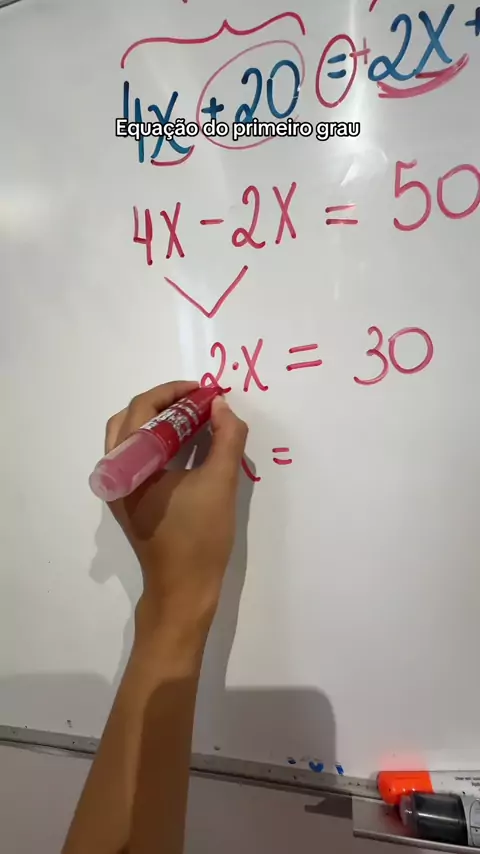 4x + 20 = + 2x +
Equação do primeiro grau
4x - 2x = 50
2·x = 30
x =